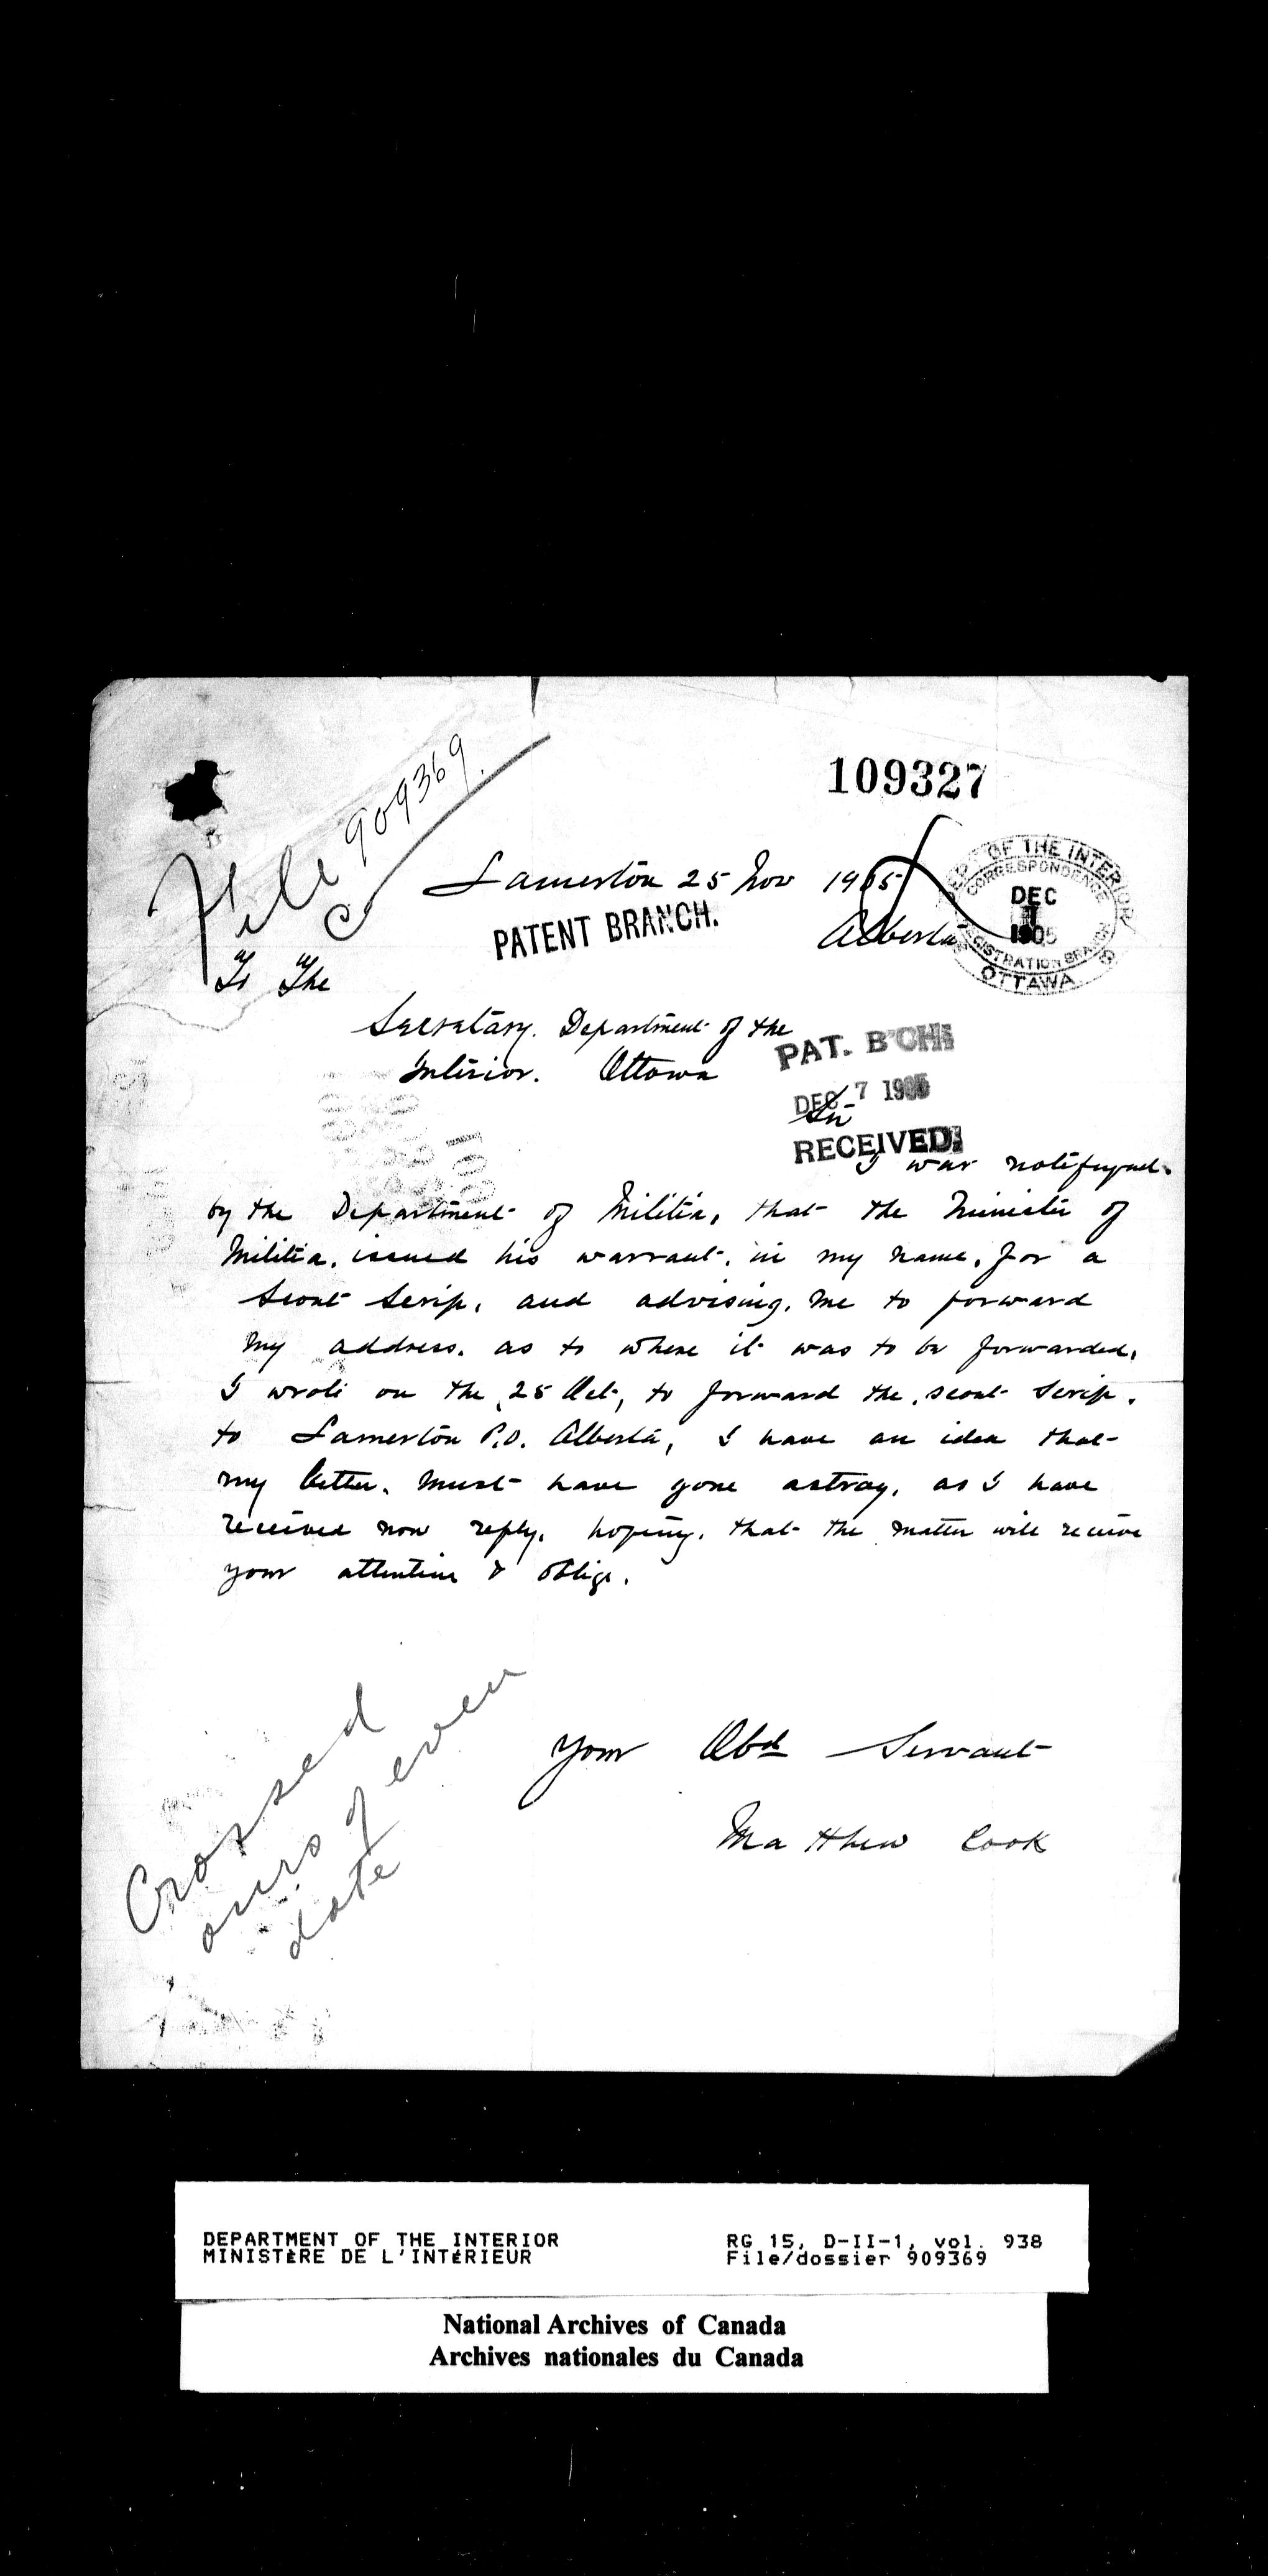 109327
File 909369.
Lamerton 25 Nov 1905
Alberta
PATENT BRANCH.
DEPT. OF THE INTERIOR
CORRESPONDENCE
DEC
1905
REGISTRATION BRANCH
OTTAWA
To The
Secretary. Department of the
Interior. Ottawa
PAT. B'CH
DEC 7 1905
RECEIVED
Sir
I was notifyed.
by the Department of Militia, that the Minister of
Militia. issued his warrant. in my name. for a
Scout Scrip, and advising. me to forward
my address. as to where it was to be forwarded,
I wrote on the 25 Oct, to forward the scout Scrip.
to Lamerton P.O. Alberta, I have an idea that
my letter. must have gone astray, as I have
received now reply. hoping. that the matter will receive
your attention & oblige.
your Obd Servant
Matthew Cook
Crossed
ours of even
date
DEPARTMENT OF THE INTERIOR
MINISTÈRE DE L'INTÉRIEUR
RG 15, D-II-1, vol. 938
File/dossier 909369
National Archives of Canada
Archives nationales du Canada